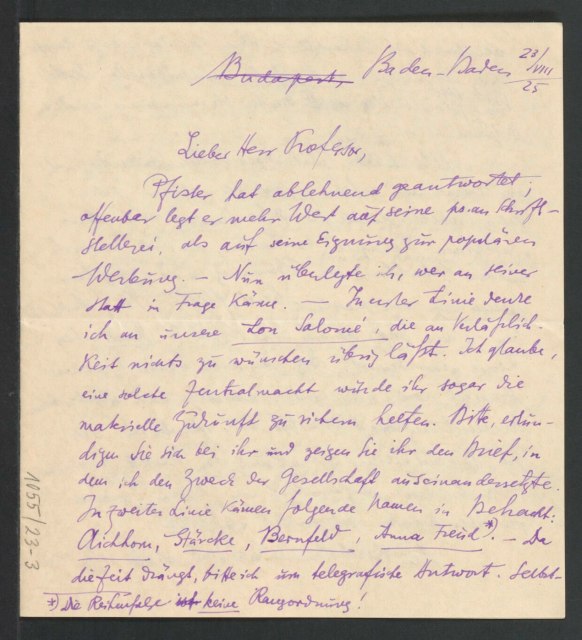 Budapest, Baden-Baden 23/VIII 25
Lieber Herr Professor,
Pfister hat ablehnend geantwortet,
offenbar legt er mehr Wert auf seine ps.an. Schrift-
stellerei, als auf seine Eignung zur populären
Werbung. – Nun überlegte ich, wer an seiner
statt in Frage käme. – In erster Linie denke
ich an unsere Lou Salomé, die an Verläßlich-
keit nichts zu wünschen übrig läßt. Ich glaube,
eine solche Zentralmacht würde ihr sogar die
materielle Zukunft zu sichern helfen. Bitte, erkun-
digen Sie sich bei ihr und zeigen Sie ihr den Brief, in
dem ich den Zweck der Gesellschaft auseinandersetzte.
In zweiter Linie kämen folgende Namen in Betracht:
Aichhorn, Stärcke, Bernfeld, Anna Freud*). – Da
die Zeit drängt, bitte ich um telegrafische Antwort. Selbst-
*) Die Reihenfolge ist keine Rangordnung!
1055/23-3